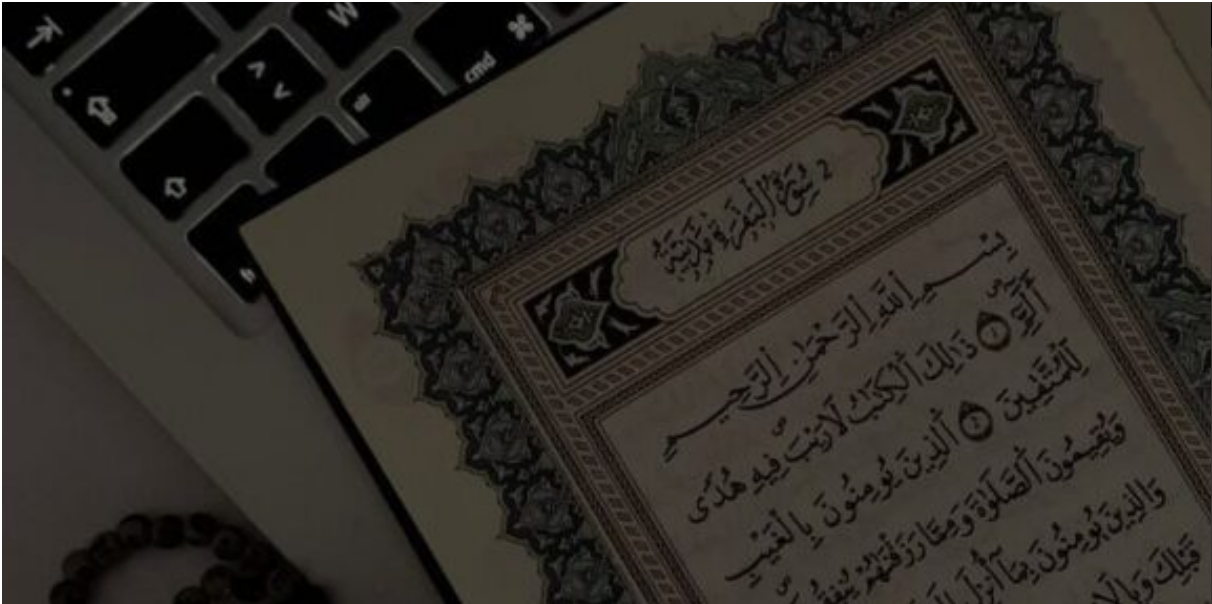 W
cmd
2 سُورَةُ الْبَقَرَةِ مَدَنِيَّةٌ
بِسْمِ اللَّهِ الرَّحْمَٰنِ الرَّحِيمِ
أَلَٓمِّٓ ١ ذَٰلِكَ الْكِتَٰبُ لَا رَيْبَ فِيهِ هُدًى
لِّلْمُتَّقِينَ ٢ الَّذِينَ يُومِنُونَ بِالْغَيْبِ
وَيُقِيمُونَ الصَّلَوٰةَ وَمِمَّا رَزَقْنَٰهُمْ يُنفِقُ
وَالَّذِينَ يُومِنُونَ بِمَا أُنزِلَ
قَبْلِكَ